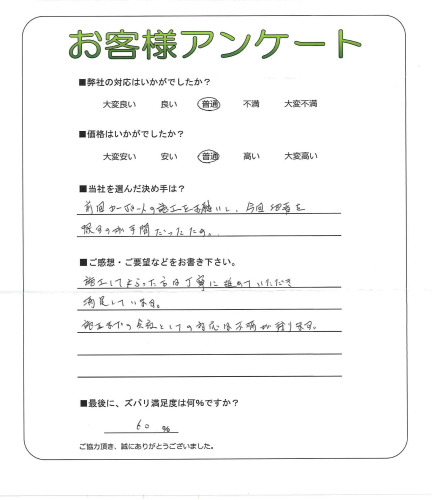 お客様アンケート
■弊社の対応はいかがでしたか？
大変良い 良い 普通 不満 大変不満
■価格はいかがでしたか？
大変安い 安い 普通 高い 大変高い
■当社を選んだ決め手は？
前回カーポートの施工をお願いし、今回他者を
探すのが手間だったため。
■ご感想・ご要望などをお書き下さい。
施工してもらった方は丁寧に進めていただき
満足しています。
施工までの会社としての対応は不満が残ります。
■最後に、ズバリ満足度は何％ですか？
60 ％
ご協力頂き、誠にありがとうございました。